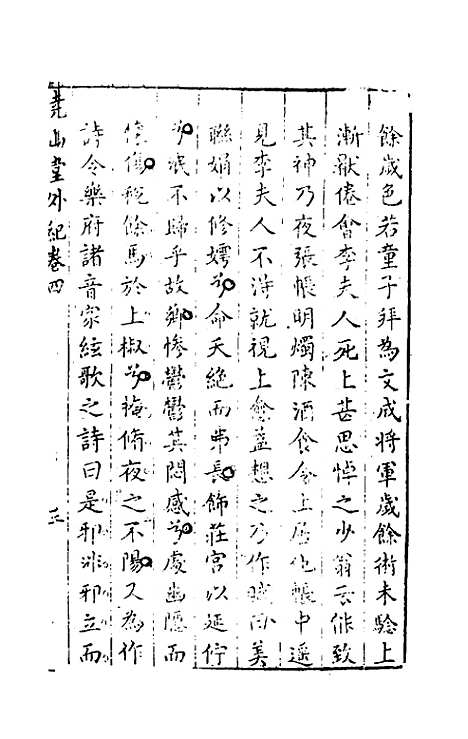 餘歲色若童子拜為文成將軍歲餘術未驗上
漸厭倦會李夫人死上甚思悼之少翁云能致
其神乃夜張帳明燭陳酒食令上居他帳中遥
見李夫人不得就視上愈益想之乃作賦曰美
聯娟以修嫮兮命夭絶而弗長飾莊宮以延佇
兮泯不歸乎故鄉慘鬱鬱其悶感兮處幽隱而
懷傷稅餘馬於上椒兮掩脩夜之不陽又為作
詩令樂府諸音家絃歌之詩曰是邪非邪立而
堯山堂外紀卷四